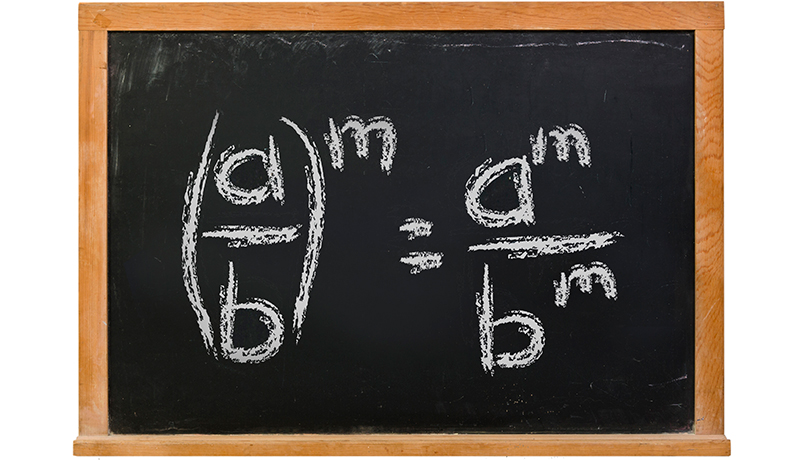 (a/b)^m = a^m/b^m